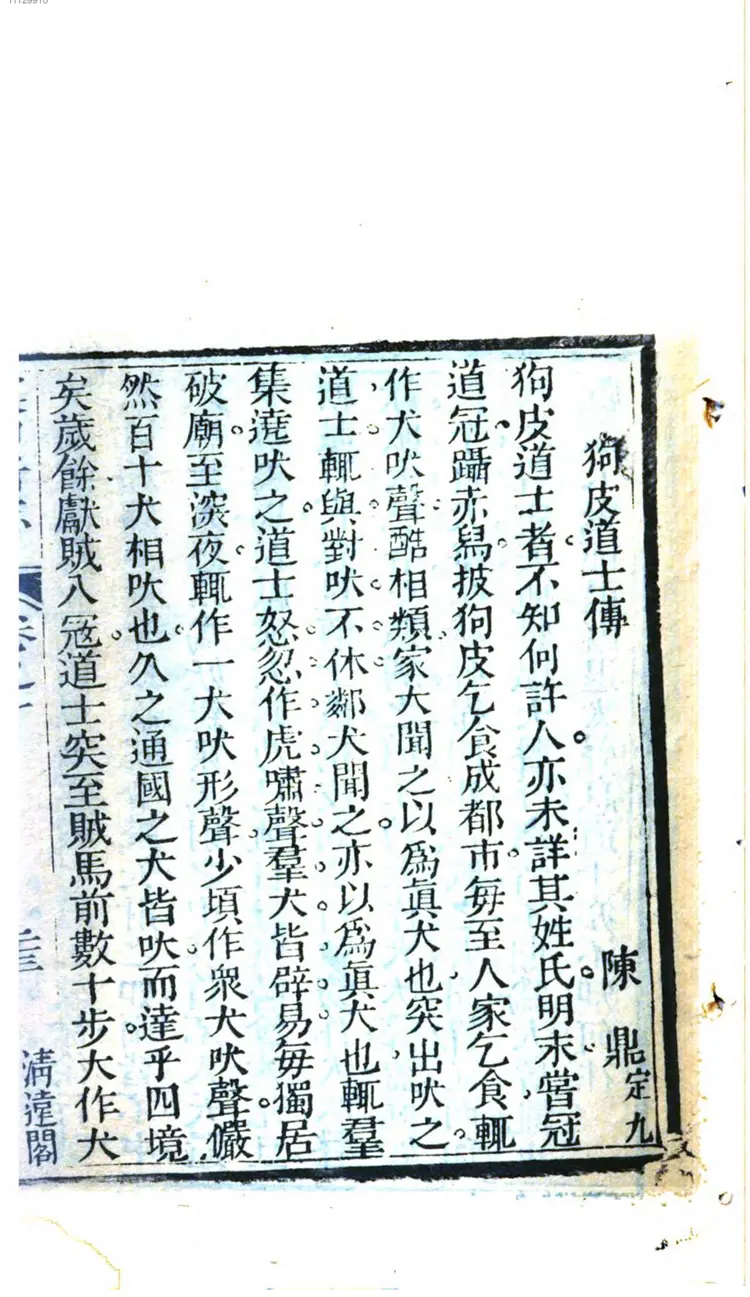 狗皮道士傳
陳鼎定九
狗皮道士者不知何許人亦未詳其姓氏明末嘗冠
道冠躡赤舄披狗皮乞食成都市每至人家乞食輒
作犬吠聲酷相類家犬聞之以爲眞犬也突出吠之
道士輒與對吠不休鄰犬聞之亦以爲眞犬也輒羣
集遶吠之道士怒忽作虎嘯聲羣犬皆辟易每獨居
破廟至深夜輒作一犬吠形聲少頃作衆犬吠聲儼
然百十犬相吠也久之通國之犬皆吠而達乎四境
矣歲餘獻賊入冦道士突至賊馬前數十步大作犬
清遠閣